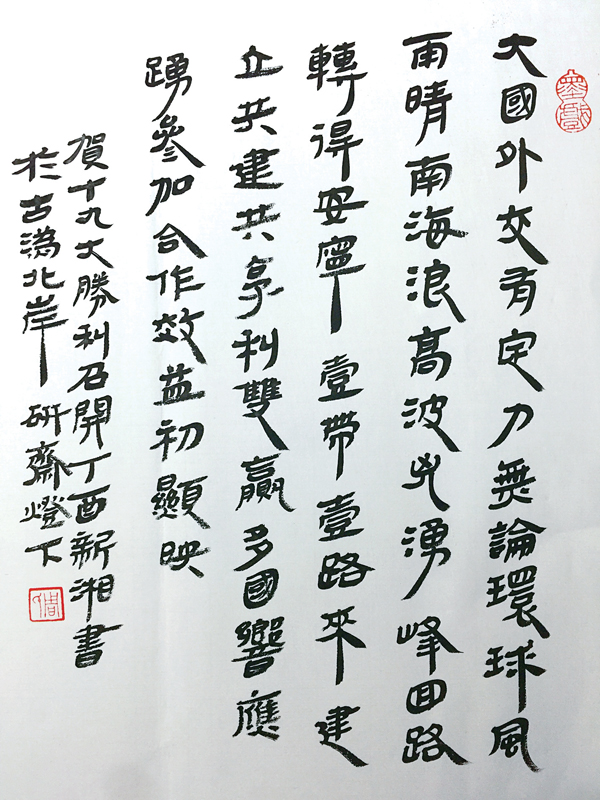 大國外交有定力無論環球風
雨晴南海浪高波光湧峰回路
轉得安寧壹帶壹路來建
立共建共享利雙贏多國響應
踴參加合作效益初顯映
賀十九大勝利召開丁酉新湘書
於古溈北岸研齋燈下